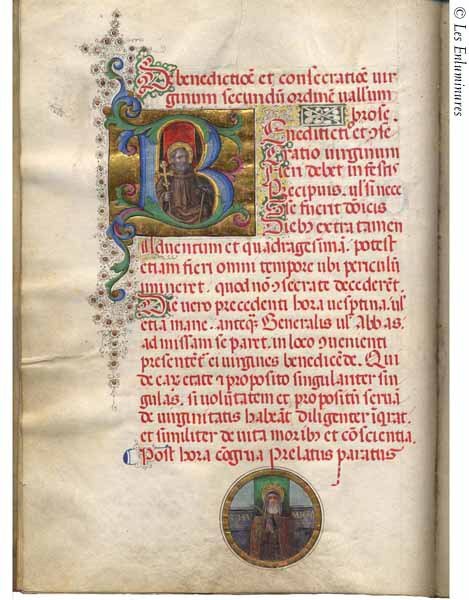 De benedictiõe et consecratiõe uir
ginum secundũ ordinẽ uallium
brose.
Benedictio et cõse
cratio uirginum
fieri debet in festis
Precipuis. ul si nece
sse fuerit dõicis
Diebus extra tamen
aduentum et quadragesimã. potest
etiam fieri omni tempore ubi periculũ
immineret. quod nõ cõsecrate decederẽt.
Die uero precedenti hora uesptina. ul
etia mane. anteqʒ Generalis ul Abbas.
ad missam se paret. in loco cõuenienti
presentẽt ei uirgines benedicẽde. Qui
de eaꝝ etate et proposito singulariter sin
gulas. si uolũtatem et propositũ seruã
de uirginitatis habeãt diligenter iqrat.
et similiter de uita moribus et cõscientia.
Post hora cõgrua Prelatus paratus
© Les Enluminures